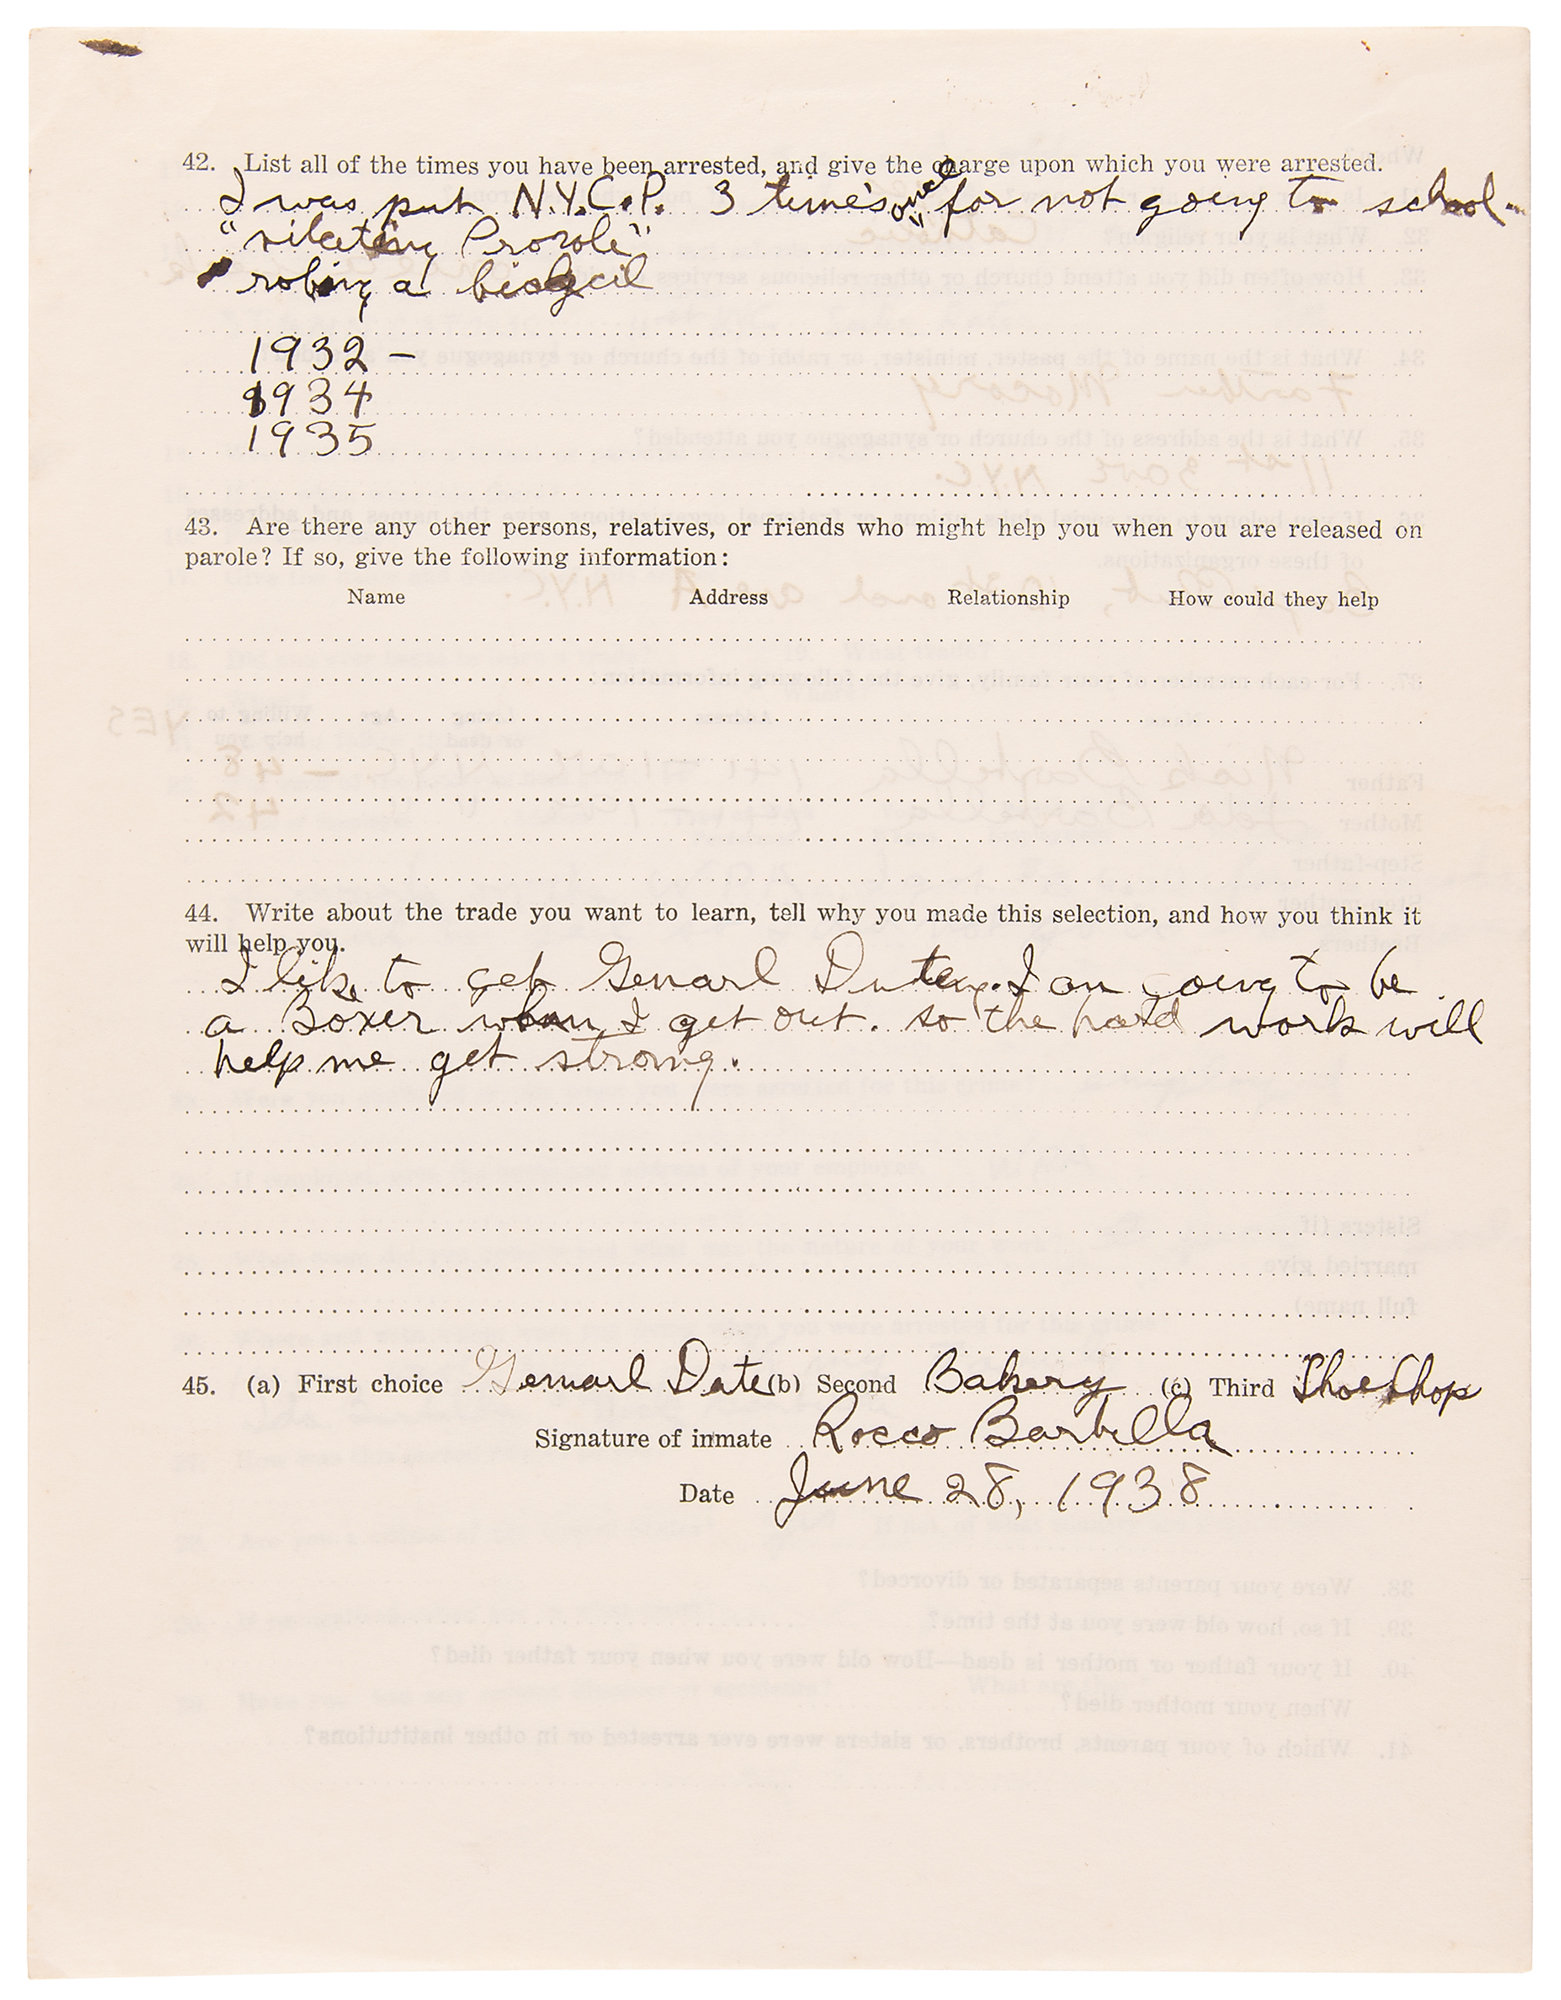 42. List all of the times you have been arrested, and give the charge upon which you were arrested.
I was put N.Y.C.P. 3 times once for not going to school
"rilating Prorole"
robing a bicycil
1932 -
1934
1935
43. Are there any other persons, relatives, or friends who might help you when you are released on
parole? If so, give the following information:
Name Address Relationship How could they help
44. Write about the trade you want to learn, tell why you made this selection, and how you think it
will help you.
I like to get Genarl Dutey. I am going to be
a Boxer when I get out. so the hard work will
help me get strong.
45. (a) First choice Genarl Date (b) Second Bakery (c) Third Shoe Shop
Signature of inmate Rocco Barbella
Date June 28, 1938